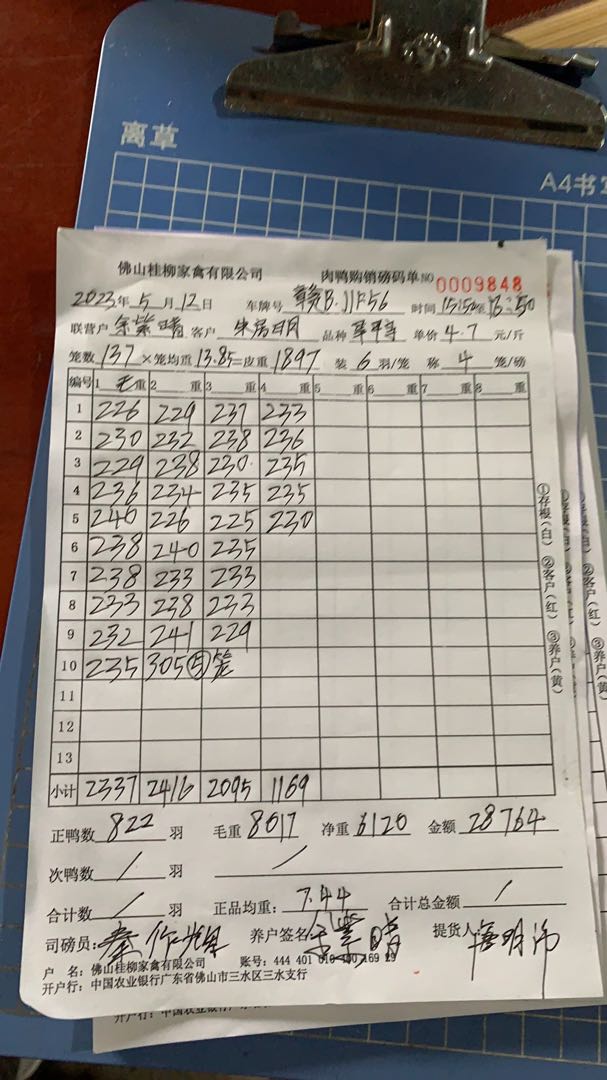 离草
A4书写
佛山桂柳家禽有限公司 肉鸭购销磅码单 NO 0009848
2023年5月12日 车牌号 赣B.11F56 时间 15:50至18:50
联营户 余紫晴 客户 品种 单价 4.7 元/斤
笼数 137 ×笼均重 13.85=皮重 1897 装 6 羽/笼 称 4 笼/磅
编号 1 毛重 2 重 3 重 4 重 5 重 6 重 7 重 8 重
1 226 229 237 233
2 230 232 238 236
3 229 238 230 235
4 236 234 235 235
5 240 226 225 230
6 238 240 235
7 238 233 233
8 233 238 233
9 232 241 229
10 235 305 ⑤笼
11
12
13
小计 2337 2416 2095 1169
正鸭数 822 羽 毛重 8017 净重 6120 金额 28764
次鸭数 / 羽 /
合计数 / 羽 正品均重: 7.44 合计总金额 /
司磅员: 养户签名: 余紫晴 提货人:
户 名: 佛山桂柳家禽有限公司 账号: 444 401 010 400 169 29
开户行: 中国农业银行广东省佛山市三水区三水支行
①存根(白) ②客户(红) ③养户(黄)
开户行: 中国农业银行广东省佛山市三水区三水支行